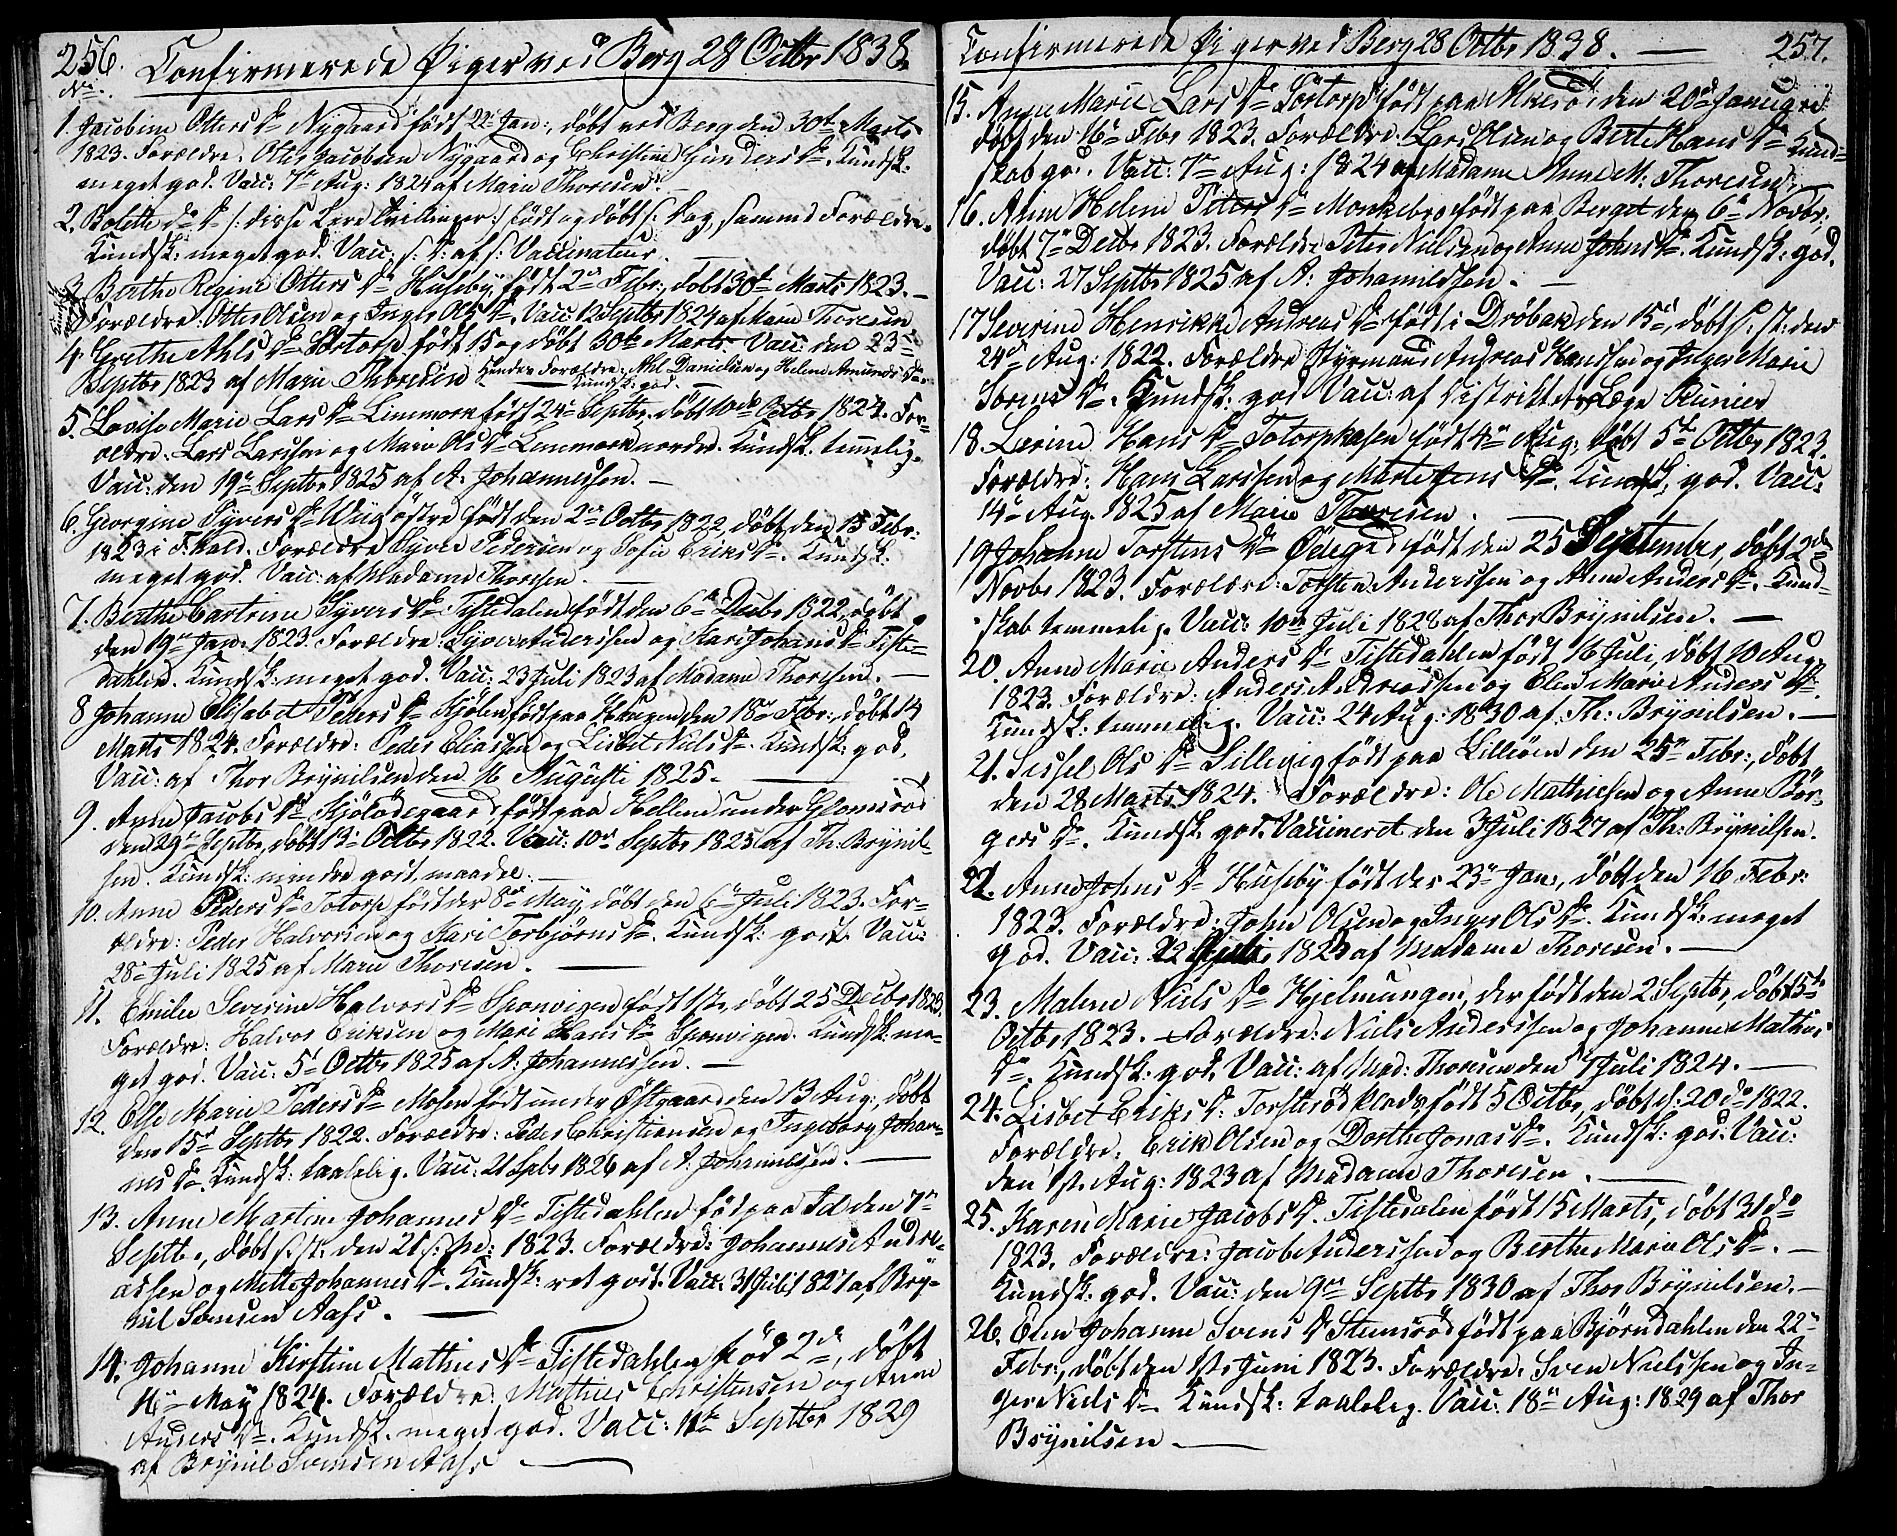 256. Confirmerede Piger ved Berg 28 Octbr 1838.
No.
1. Jacobine Otters Dr Nygaard født 22 Jan:, døbt ved Berg den 30te Marts
1823. Forældre. Otter Jacobsen Nygaard og Christine Gunders Dr. Kundsk:
meget god. Vacc: 7de Aug: 1824 af Marie Thoresen.
2. Bolette do Dr /: disse ere Tvillinger :/ født og døbt s: Dag, samme Forældre.
Kundsk: meget god. Vacc: s: D: af s: Vaccinateur.
3. Berthe Regine Otters Dr Huseby født 2den Febr:, døbt 30te Marts 1823. —
Forældre: Otter Olsen og Inger Ols Dr. Vacc: 12 Septbr 1824 af Marie Thoresen
4. Grethe Ahls Dr Sørtorp født 15 og døbt 30te Marts. Vacc: den 23de
Septbr 1823 af Marie Thoresen. Hendes Forældre: Ahl Danielsen og Helene Amunds Dr
Kundsk: god.
5. Lovise Marie Lars Dr Limmork født 24de Septbr, døbt 10de Octbr 1824. For-
ældre. Lars Larssen og Marie Ols Dr Lemmork nordre. Kundsk. temmelig.
Vacc: den 19de Septbr 1825 af A. Johannessen. —
6. Georgine Syvers Dr Wiig østre født den 2den Octbr 1822, døbt den 15 Febr:
1823 i F.hald. Forældre Syver Pedersen og Sofie Eriks Dr. Kundsk:
meget god. Vacc: af Madame Thoresen. —
7. Berthe Cartrine Syvers Dr Tistedalen født den 6te Decbr 1822, døbt
den 19de Jan: 1823. Forældre: Syver Anderssen og Kari Johans Dr Tiste-
dahlen. Kundsk: meget god. Vacc: 23 Juli 1823 af Madame Thoresen. —
8 Johanne Elisabet Peders Dr Kjølen født paa Haugen den 18de Febr:, døbt 14
Marts 1824. Forældre: Peder Eliassen og Lisbet Niels Dr. Kundsk: god.
Vacc: af Thor Brynilsen den 16 Augusti 1825. —
9. Anne Jacobs Dr Kjølødegaard født paa Hellen under Glomsrød
den 29de Septbr, døbt 13de Octbr 1822. Vacc: 10de Septbr 1825 af Th: Brynil-
sen. Kundsk: mindre godt, maadel: —
10. Anne Peders Dr Totorp født der 8de May, døbt den 6te Juli 1823. For-
ældre: Peder Halvorsen og Kari Torbjørns Dr. Kundsk: godt. Vacc:
28de Juli 1825 af Marie Thoresen. —
11. Emilie Severine Halvors Dr Sponvigen født 1ste, døbt 25 Decbr 1823.
Forældre: Halvor Eriksen og Mari Hans Dr Sponvigen. Kundsk: me-
get god. Vacc: 5te Octbr 1825 af A: Johannessen. —
12. Else Marie Peders Dr Mosen født under Østgaard den 13 Aug:, døbt
den 15de Septbr 1822. Forældre: Peder Christiansen og Ingeborg Johan-
nes Dr. Kundsk: taalelig. Vacc: 21 Sptbr 1826 af A: Johannessen. —
13. Anne Martine Johannes Dr Tistedahlen fød paa Id den 7de
Septbr, døbt s: st: den 21 s: M: 1823. Forældre: Johannes Andre-
assen og Mette Johannes Dr. Kundsk: ret godt. Vacc: 31 Juli 1827 af Bry-
nil Svensen Aass. —
14. Johanne Kirstine Mathies Dr Tistedahlen fød 2de, døbt
16de May 1824. Forældre: Mathies Christensen og Anne
Anders Dr. Kundsk. meget god. Vacc: 11te Septbr 1829
af Brynil Svensen Aass —
Confirmerede Piger ved Berg 28 Octbr 1838. — 257.
15. Anne Marie Lars Dr Sørtorp født paa den 20de Januari
døbt den 16de Febr 1823. Forældre: Lars Olsen og Berte Hans Dr Kund-
skab god. Vacc: 7de Aug: 1824 af Madame Anne M: Thoresen.
16. Anne Helene Peters Dr Monkebro født paa Berget den 6te Novbr,
døbt 7de Decbr 1823. Forældre Peter Nielsen og Anne Johns Dr. Kundsk: god.
Vacc: 27 Septbr 1825 af A: Johannessen. —
17 Severine Henrikke Andreas Dr født i Drøbak den 15de, døbt s: st: den
24de Aug: 1822. Forældre Styrmand Andreas Hanssen og Inger Marie
Sørens Dr. Kundsk: god Vacc: af Districktets Læge
18. Lovine Hans Dr Totorphasen født 4de Aug:, døbt 5te Octbr 1823.
Forældre: Hans Larssen og Marte Jens Dr. Kundsk, god. Vacc:
14de Aug: 1825 af Marie Thoresen. —
19 Johanne Torstens Dr Ødeged født den 25 September, døbt 2de
Novbr 1823. Forældre: Torsten Anderssen og Anne Anders Dr. Kund-
skab temmelig. Vacc: 10de Juli 1828 af Thor Brynilsen. —
20. Anne Marie Anders Dr Tistedahlen født 16 Juli, døbt 10 Aug
1823. Forældre: Anders Andreassen og Elen Marie Anders Dr.
Kundsk: temmelig. Vacc: 24 Aug: 1830 af Th: Brynilsen. —
21. Sissel Ols Dr Lillevig født paa Lilleøen den 25de Febr:, døbt
den 28 Marts 1824. Forældre: Ole Mathiesen og Anne Bør-
gers Dr. Kundsk. god. Vaccineret den 3 Juli 1827 af Th: Brynilsen.
22. Anne Johns Dr Huseby født der 23de Jan:, døbt den 16 Febr:
1823. Forældre: John Olsen og Inger Ols Dr. Kundsk: meget
god. Vacc: 22 Juli 1823 af Madame Thoresen. —
23. Malene Niels Dr Hjelmungen, der født den 2 Septbr, døbt 5te
Octbr 1823. — Forældre: Niels Anderssen og Johanne Mathies
Dr. Kundsk: god. Vacc: af Mad: Thoresen den 1 Juli 1824. —
24. Lisbet Eriks Dr. Torstisrød født 5 Octbr, døbt d. 20de 1822.
Forældre: Erik Olsen og Dorthe Jonas Dr. Kundsk: god. Vacc:
den 1ste Aug: 1823 af Madame Thoresen. —
25. Karen Marie Jacobs Dr. Tistedalen født 15 Marts, døbt 31 do
1823. Forældre: Jacob Anderssen og Berthe Marie Ols Dr. —
Kundsk: god. Vacc: den 9de Septbr 1830 af Thor Brynilsen. —
26. Elen Johanne Svens Dr Steensrød født paa Bjørndahlen den 22de
Febr:, døbt den 1ste Juni 1823. Forældre: Sven Nielssen og In-
ger Niels Dr. Kundsk: taalelig. Vacc: 18de Aug: 1829 af Thor
Brynilsen. —